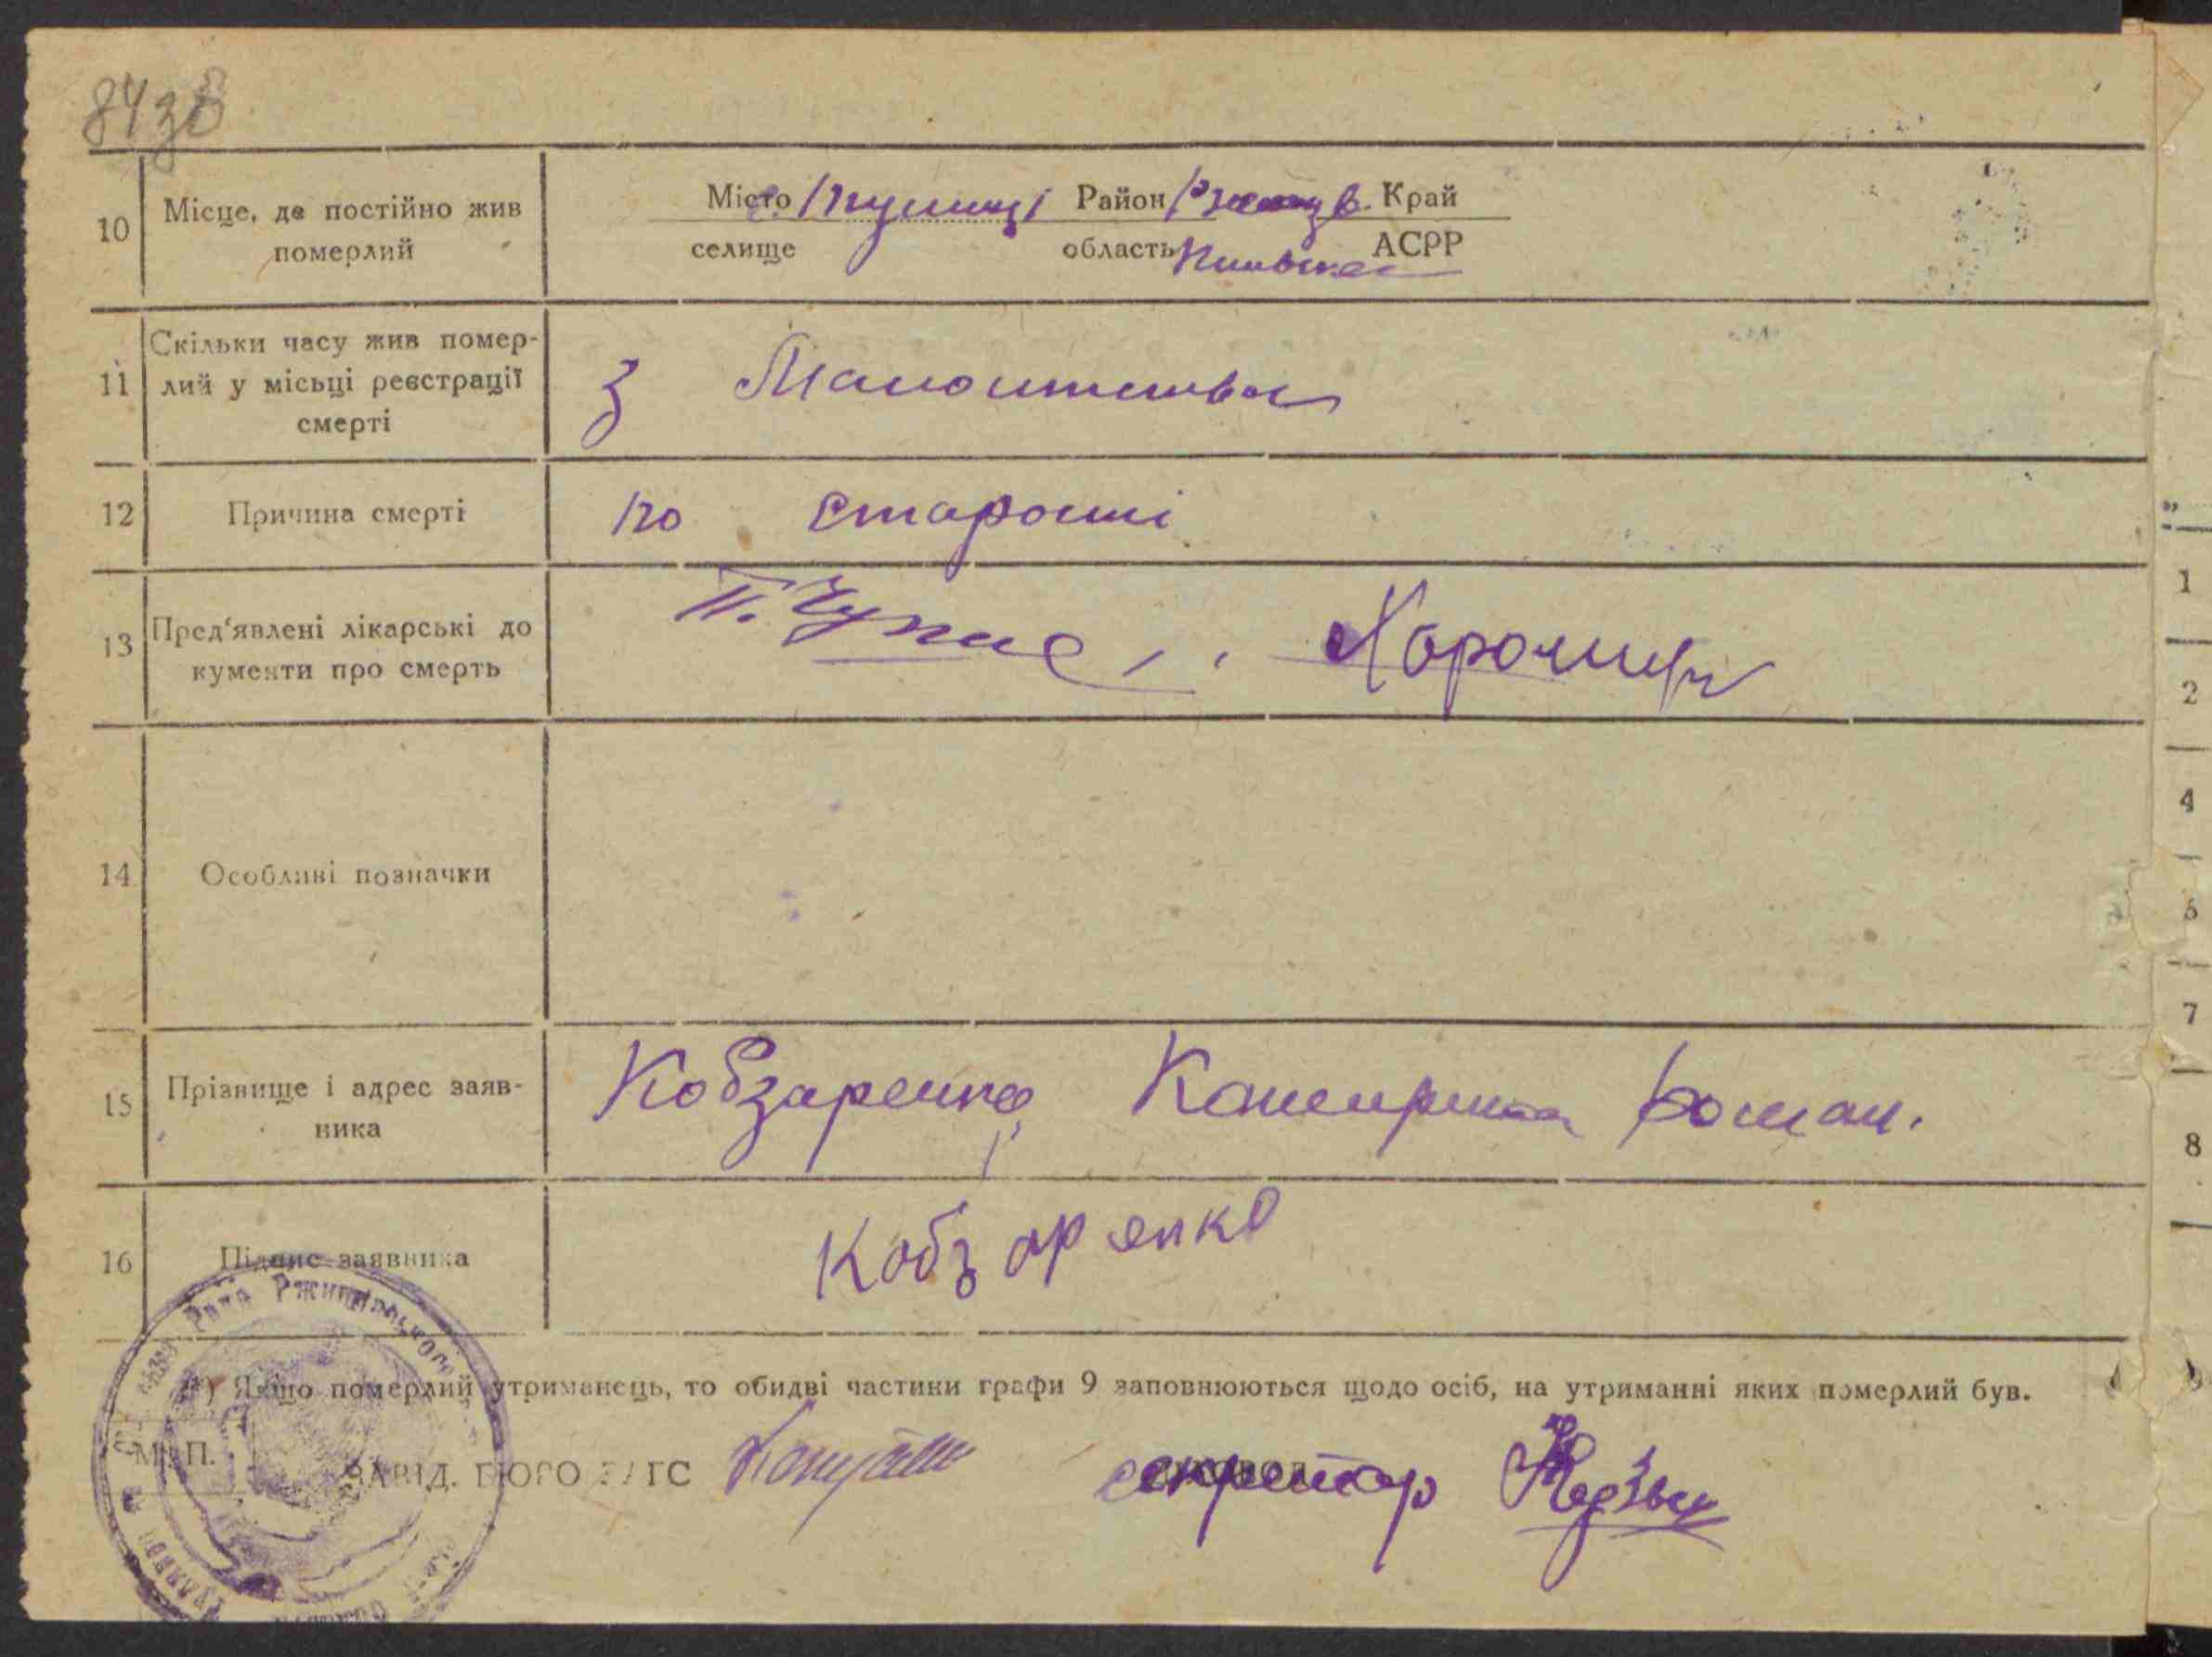 8438
10 Місце, де постійно жив померлий
Місто с. Пугачці Район Ржищів. Край
селище область Київська АСРР
11 Скільки часу жив помер-
лий у місьці реєстрації
смерті
З Малолітства
12 Причина смерті
по старошті
13 Пред'явлені лікарські до
кументи про смерть
14 Особливі позначки
15 Прізвище і адрес заяв-
ника
Кобзаренко Катерина Роман.
16 Підпис заявника
Кобзаренко
Рада Ржищівського
*) Якщо померлий утриманець, то обидві частини графи 9 заповнюються щодо осіб, на утриманні яких померлий був.
М. П.
ЗАВІД. БЮРО ЗАГС
секретар
1
2
4
6
7
8